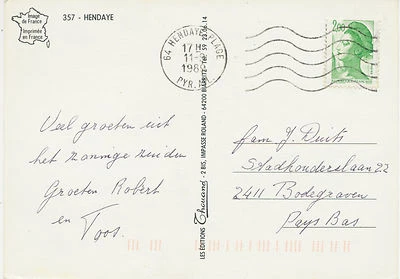 Image
de France
Imprimée
en France
357 - HENDAYE
Veel groeten uit
het zonnige zuiden
Groeten Robert
en Toos.
LES ÉDITIONS Thouand - 2 BIS, IMPASSE ROLAND - 64200 BIARRITZ - Tél. 59 23 06 14
64 HENDAYE PLAGE
17 H
11-9
198
PYR.
2,00
fam. J. Duits
Stadhouderslaan 22
2411 Bodegraven
Pays Bas